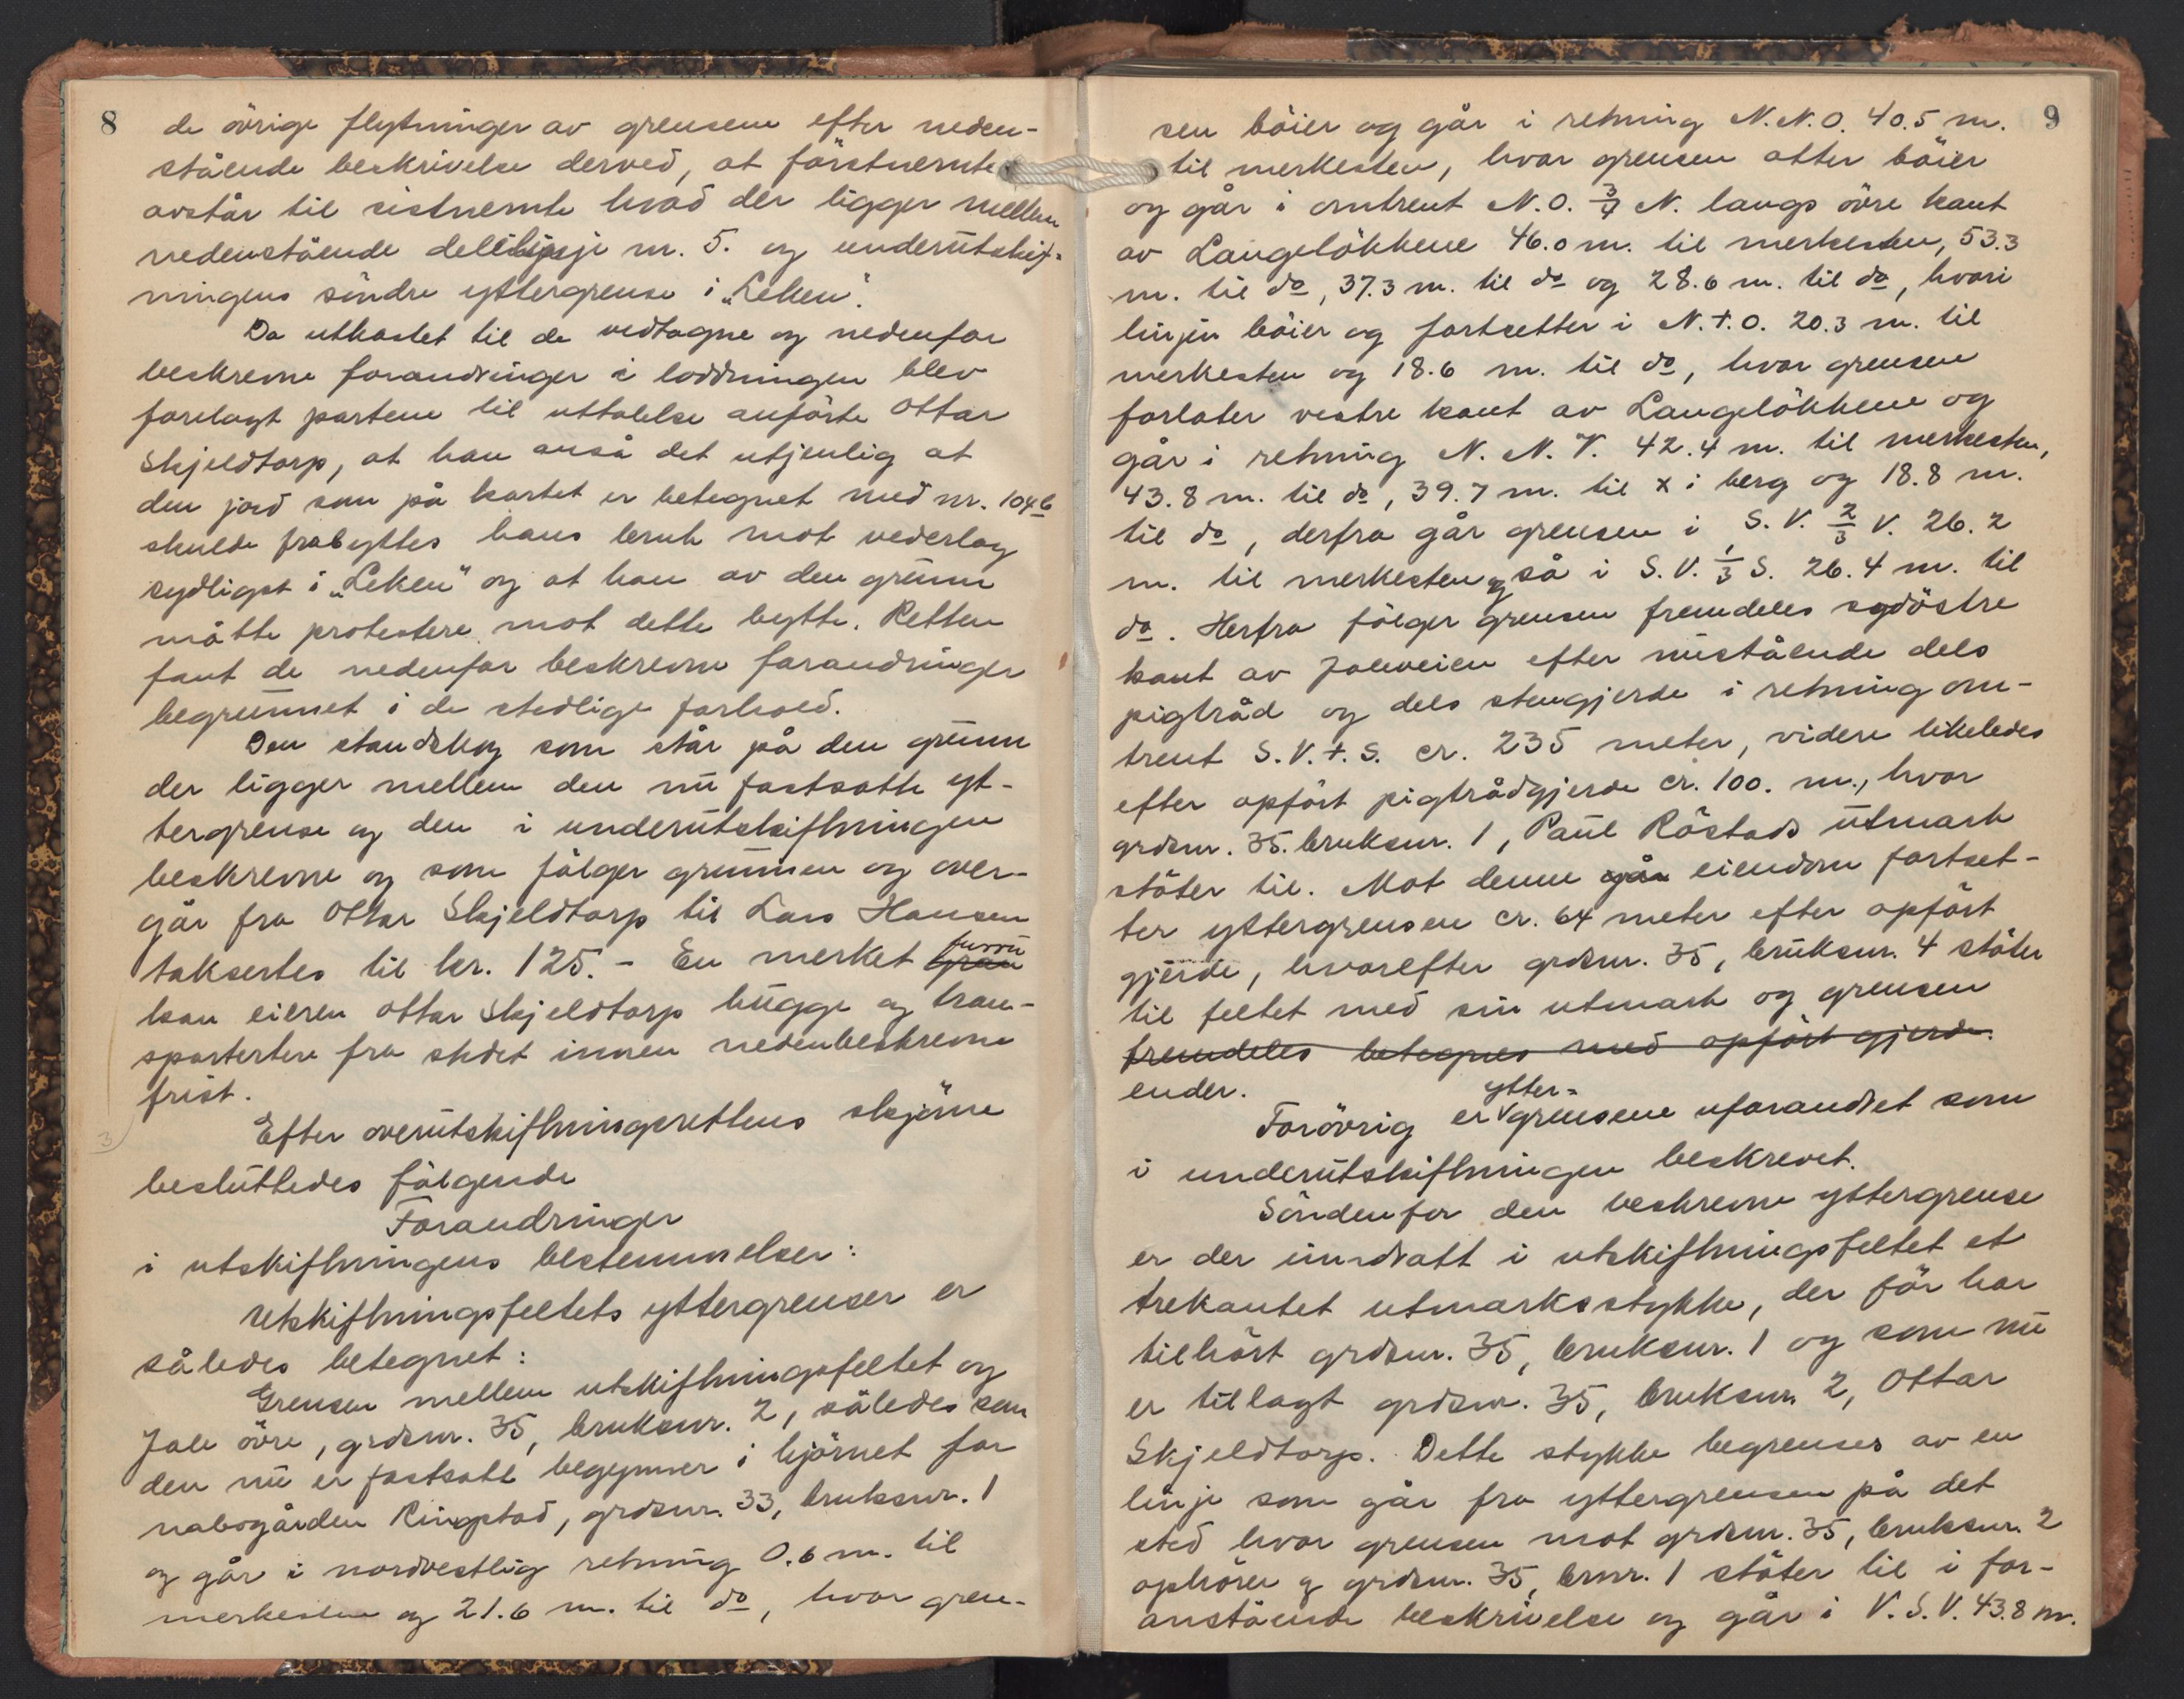 8
de övrige flytninger av grensene efter neden-
stående beskrivelse derved, at förstnernte
avstår til sistnemte hvad der ligger mellem
nedenstående delelinje nr. 5. og underutskift-
ningens söndre yttergrense i „Leken".
Da utkastet til de vedtagne og nedenfor
beskrevne forandringer i loddningen blev
forelagt partene til uttalelse anförte Ottar
Skjeldtorp, at han anså det utjenlig at
den jord som på kartet er betegnet med nr. 104b
skulde frabyttes hans bruk mot vederlag
sydligst i „Leken" og at han av den grunn
måtte protestere mot dette bytte. Retten
fant de nedenfor beskrevne forandringer
begrunnet i de stedlige forhold.
Den standskog som står på den grunn
der ligger mellem den nu fastsatte yt-
tergrense og den i underutskiftningen
beskrevne og som fölger grunnen og over-
går fra Ottar Skjeldtorp til Lars Hansen
taksertes til kr. 125.- En merket gran furru
kan eieren Ottar Skjeldtorp hugge og tran-
sportertere fra stedet innen nedenbeskrevne
frist.
Efter overutskiftningsrettens skjönn
besluttedes fölgende
Forandringer
i utskiftningens bestemmelser:
Utskiftningsfeltets yttergrenser er
således betegnet:
Grensen mellem utskiftningsfeltet og
Jale övre, grdsnr. 35, bruksnr. 2, således som
den nu er fastsatt begynner i hjörnet for
nabogården Ringstad, grdsnr. 33, bruksnr. 1
og går i nordvestlig retning 0.6 m. til
merkesten og 21.6 m. til do, hvor gren-
9
sen böier og går i retning N.N.O. 40.5 m.
til merkesten, hvor grensen atter böier
og går i omtrent N.O. 3/4 N. langs övre kant
av Langelökkene 46.0 m. til merkesten, 53.3
m. til do, 37.3 m. til do og 28.6 m. til do, hvori
linjen böier og fortsetter i N.t.O. 20.3 m. til
merkesten og 18.6 m. til do, hvor grensen
forlater vestre kant av Langelökkene og
går i retning N.N.V. 42.4 m. til merkesten,
43.8 m. til do, 39.7 m. til x i berg og 18.8 m.
til do, derfra går grensen i S.V. 2/3 V. 26.2
m. til merkesten og så i S.V. 1/3 S. 26.4 m. til
do. Herfra fölger grensen fremdeles sydöstre
kant av Jaleveien efter nustående dels
pigtråd og dels stengjerde i retning om-
trent S.V.t.S. cr. 235 meter, videre likeledes
efter opfört pigtrådgjerde cr. 100. m., hvor
grdsnr. 35. bruksnr. 1, Paul Röstads utmark
stöter til. Mot denne går eiendom fortset-
ter yttergrensen cr. 64 meter efter opfört
gjerde, hvorefter grdsnr. 35, bruksnr. 4 stöter
til feltet med sin utmark og grensen
fremdeles betegnes med opfört gjerde.
ender.
Forövrig er ytter-grensene uforandret som
i underutskiftningen beskrevet.
Söndenfor den beskrevne yttergrense
er der inndratt i utskiftningsfeltet et
trekantet utmarksstykke, der för har
tilhört grdsnr. 35, bruksnr. 1 og som nu
er tillagt grdsnr. 35, bruksnr. 2, Ottar
Skjeldtorp. Dette stykke begrenses av en
linje som går fra yttergrensen på det
sted hvor grensen mot grdsnr. 35, bruksnr. 2
ophörer og grdsnr. 35, brnr. 1 stöter til i for-
anstående beskrivelse og går i V.S.V. 43.8 m.